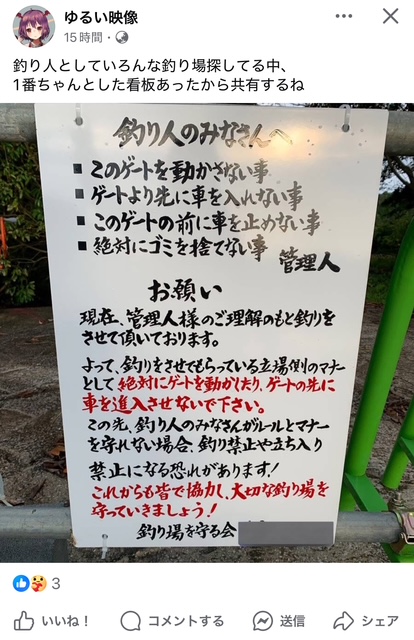 ゆるい映像
15時間・
釣り人としていろんな釣り場探してる中、
1番ちゃんとした看板あったから共有するね
釣り人のみなさんへ
■ このゲートを動かさない事
■ ゲートより先に車を入れない事
■ このゲートの前に車を止めない事
■ 絶対にゴミを捨てない事
管理人
お願い
現在、管理人様のご理解のもと釣りを
させて頂いております。
よって、釣りをさせてもらっている立場側のマナー
として絶対にゲートを動かしたり、ゲートの先に
車を進入させないで下さい。
この先、釣り人のみなさんがルールとマナー
を守れない場合、釣り禁止や立ち入り
禁止になる恐れがあります!
これからも皆で協力し、大切な釣り場を
守っていきましょう!
釣り場を守る会
3
いいね！
コメントする
送信
シェア